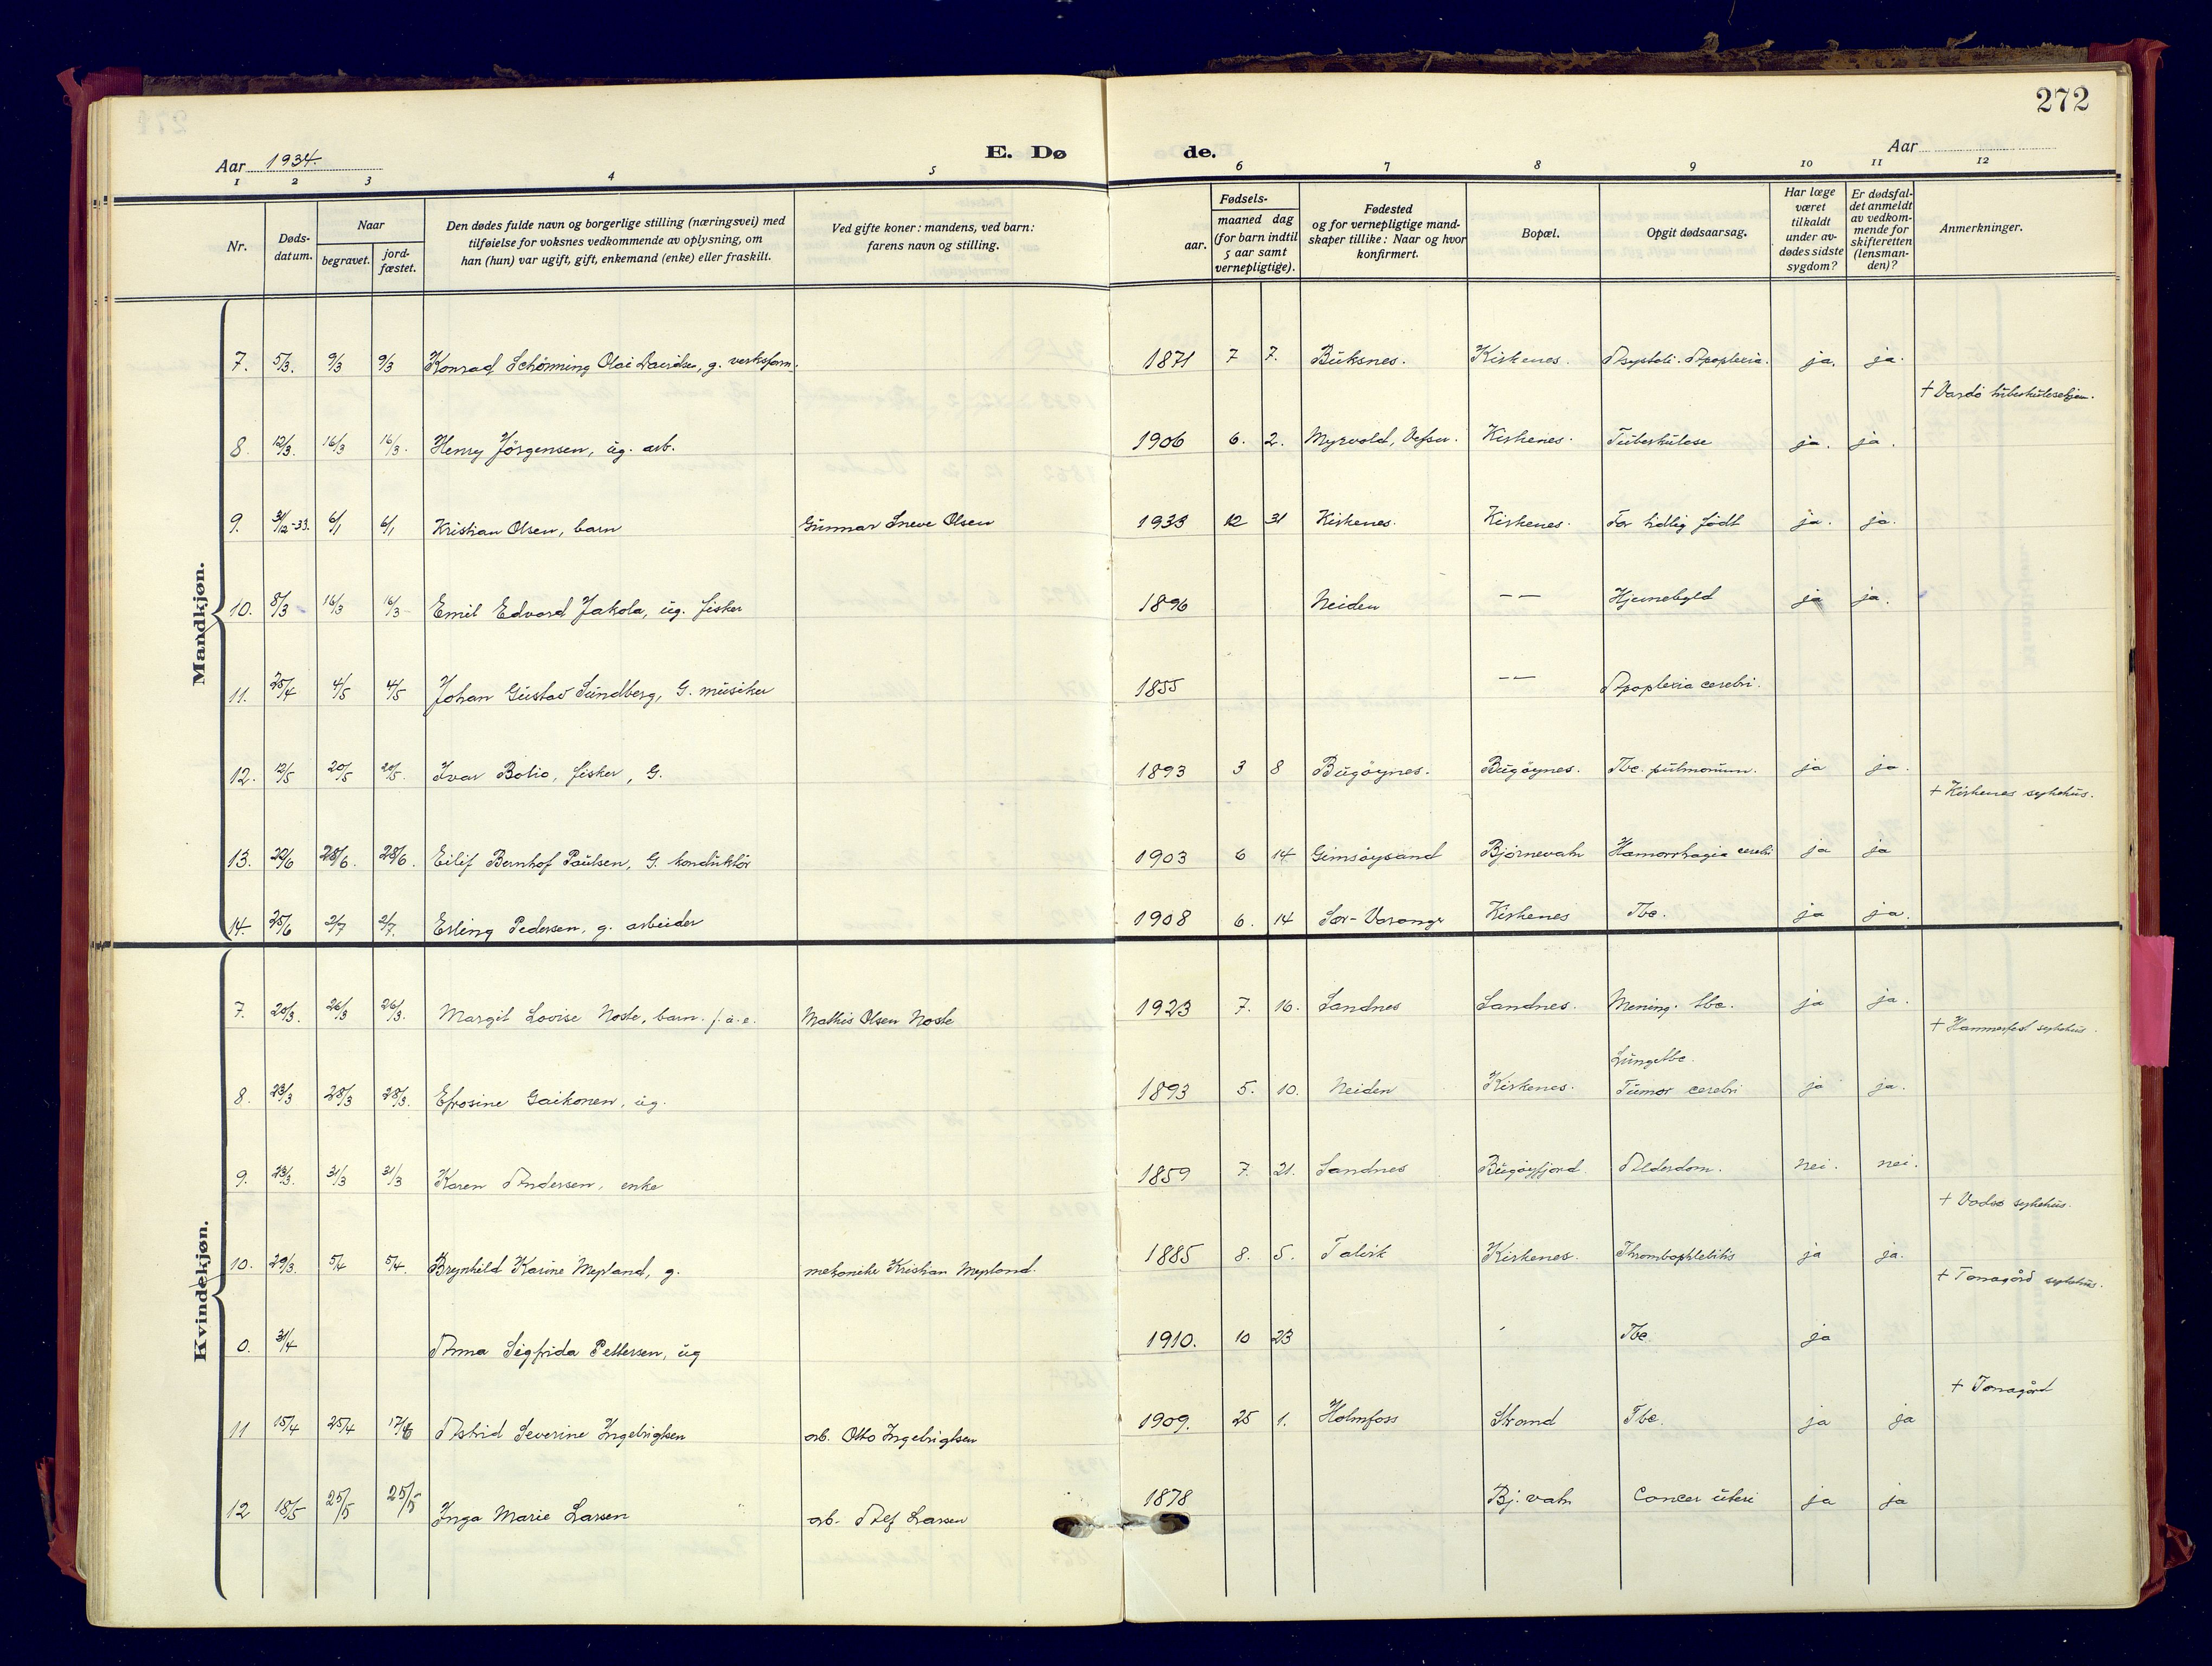 272
Aar 1934.
E. Dø de.
Aar
1 2 3 4 5 6 7 8 9 10 11 12
Nr.
Døds-
datum.
Naar
begravet.
jord-
fæstet.
Den dødes fulde navn og borgerlige stilling (næringsvei) med
tilføielse for voksnes vedkommende av oplysning, om
han (hun) var ugift, gift, enkemand (enke) eller fraskilt.
Ved gifte koner: mandens, ved barn:
farens navn og stilling.
aar.
Fødsels-
maaned dag
(for barn indtil
5 aar samt
vernepligtige).
Fødested
og for vernepligtige mand-
skaper tillike: Naar og hvor
konfirmert.
Bopæl.
Opgit dødsaarsag.
Har læge
været
tilkaldt
under av-
dødes sidste
sygdom?
Er dødsfal-
det anmeldt
av vedkom-
mende for
skifteretten
(lensman-
den)?
Anmerkninger.
Mandkjøn.
7. 5/3. 9/3 9/3 Konrad Schønning Olai Davidsen, g. verksform. 1871 7 7. Buksnes. Kirkenes. Apoplexia. ja. ja.
+ Vardø
8. 12/3. 16/3 16/3. Henry Jörgensen, ug. arb. 1906 6. 2. Myrvold, Vefsn. Kirkenes. Tuberkulose ja. ja.
9. 31/12-33. 6/1 6/1 Kristian Olsen, barn Gunnar Sneve Olsen 1933 12 31 Kirkenes. Kirkenes. For tidlig födt ja. ja.
10. 8/3 16/3 16/3 Emil Edvard Jakola, ug. fisker 1896 Neiden — — Hjernebyld ja ja.
11. 25/4 4/5 4/5 Johan Gustav Sundberg, G. musiker 1855 — — Apoplexia cerebri.
12. 12/5 20/5 20/5. Ivar Bolio, fisker, G. 1893 3 8 Bugöynes. Bugöynes. Tbc. pulmonum. ja ja.
+ Kirkenes sykehus.
13. 22/6 28/6. 28/6. Eilif Bernhof Paulsen, G. konduktör 1903 6 14 Gimsöysand Björnevatn Hæmorrhagia cerebri ja ja
14. 25/6 2/7 2/7. Erling Pedersen, g. arbeider 1908 6. 14 Sör-Varanger Kirkenes Tbc. ja ja.
Kvindekjøn.
7. 20/3. 26/3 26/3. Margit Lovise Noste, barn. f. a. e. Mathis Olsen Noste 1923 7. 16. Sandnes Sandnes. Mening. tbc. ja ja.
+ Hammerfest sykehus.
Lungetbc.
8. 23/3 28/3 28/3. Efrosine Gaikonen, ug. 1893 5. 10. Neiden Kirkenes. Tumor cerebri ja ja.
9. 23/3. 31/3 31/3 Karen Andersen, enke 1859 7. 21. Sandnes Bugöyfjord Alderdom. nei. nei.
+ Vadsø sykehus.
10. 29/3. 5/4 5/4. Brynhild Karine Mepland, g. mekanike Kristian Mepland. 1885 8. 5. Talvik Kirkenes. Thrombophlebitis ja ja.
+ Tonagård sykehus.
0. 31/4 Anna Sigfrida Pettersen, ug 1910. 10 23 Tbc. ja
+ Tonagård
11 15/4 25/4 Astrid Severine Ingebrigtsen arb. Otto Ingebrigtsen 1909. 25 1. Holmfoss Strand Tbc. ja ja
12 18/5 25/5 25/5 Inga Marie Larsen arb. Alf Larsen 1878 Bj. vatn Cancer uteri ja ja